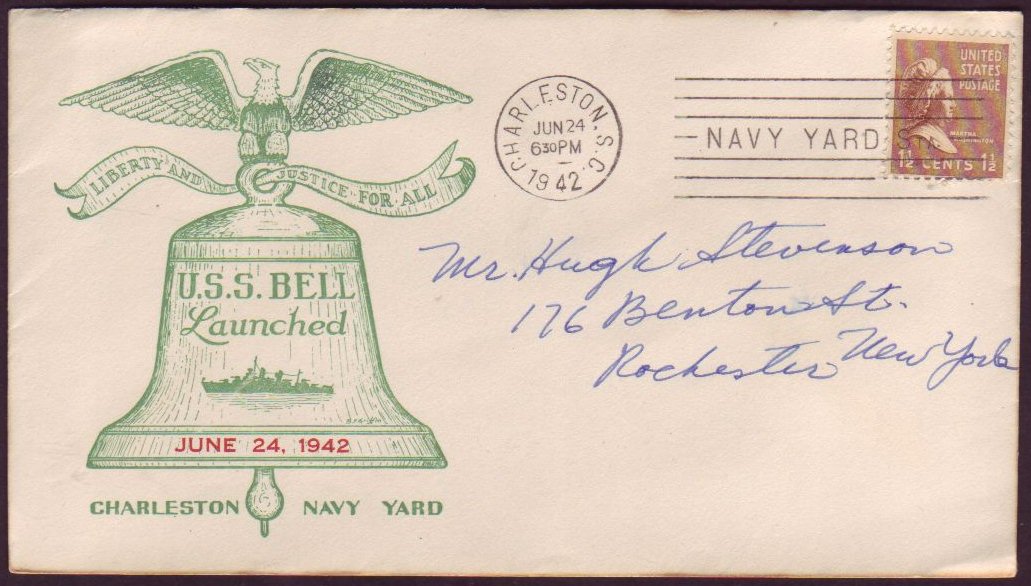 LIBERTY AND JUSTICE FOR ALL
U.S.S. BELL
Launched
JUNE 24, 1942
CHARLESTON NAVY YARD
CHARLESTON. S.C.
JUN 24
630PM
1942
NAVY YARD STA
UNITED
STATES
POSTAGE
MARTHA
WASHINGTON
1½ CENTS 1½
Mr. Hugh Stevenson
176 Benton St.
Rochester New York